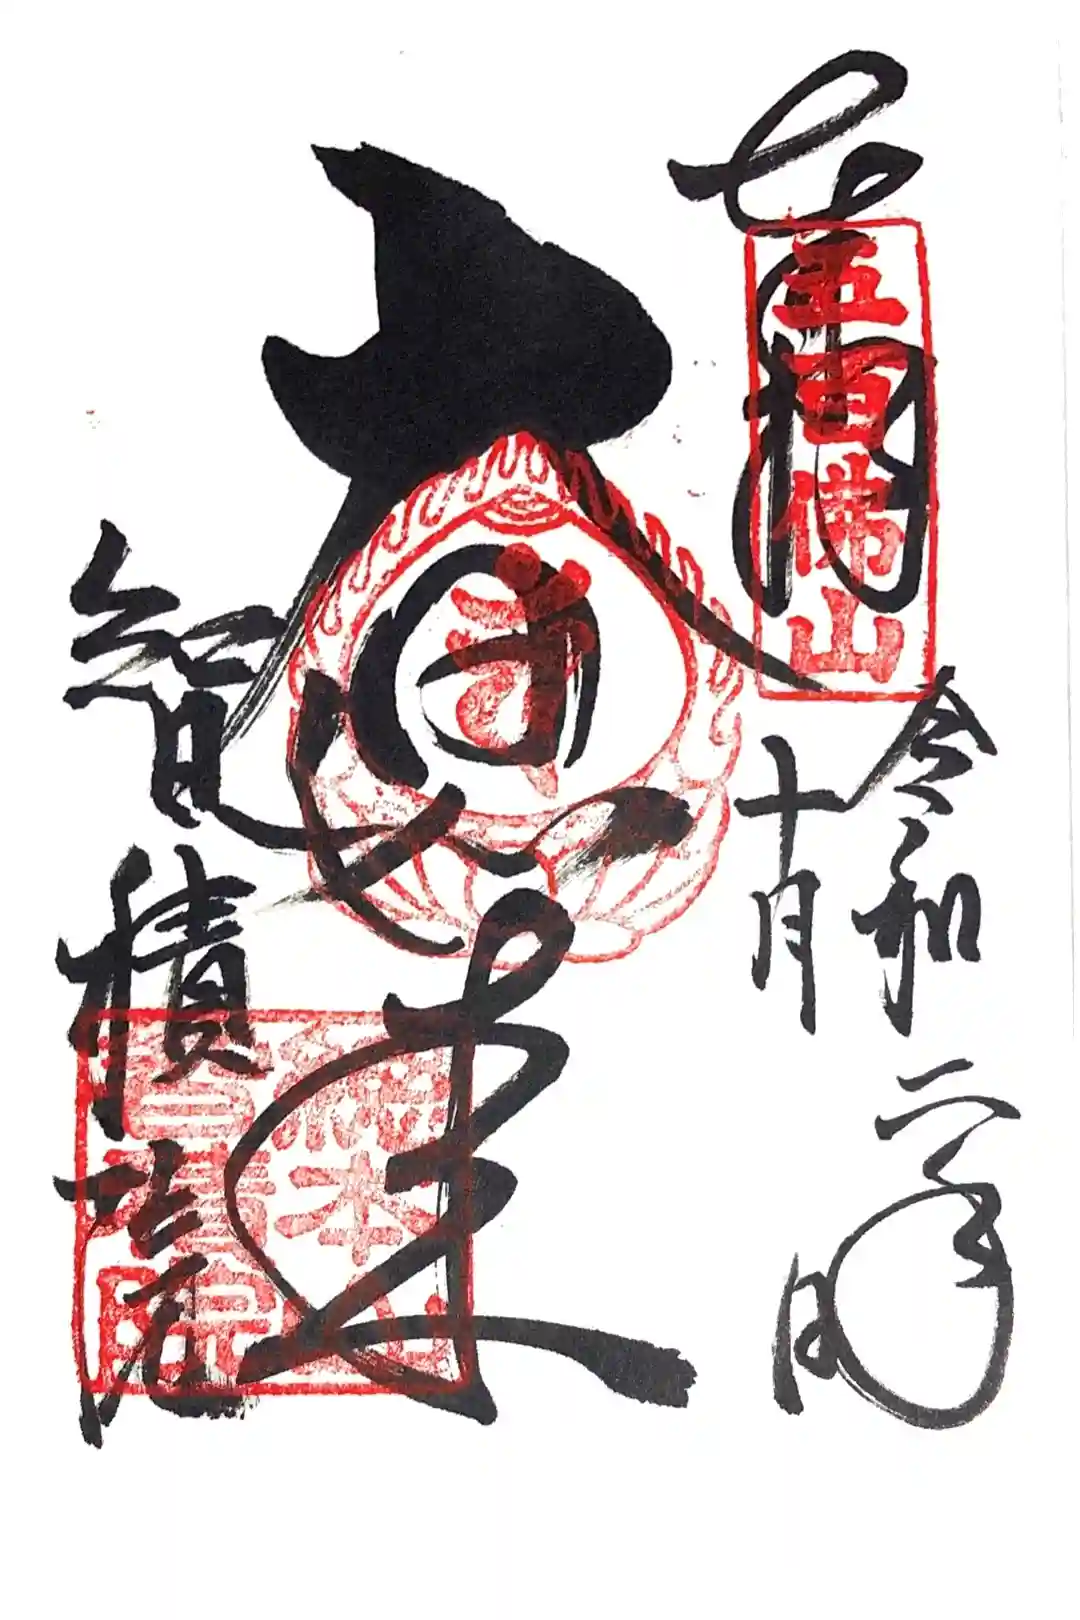 奉拝
五百佛山
令和二年
十月 日
大日如来
智積院
総本山
智積院